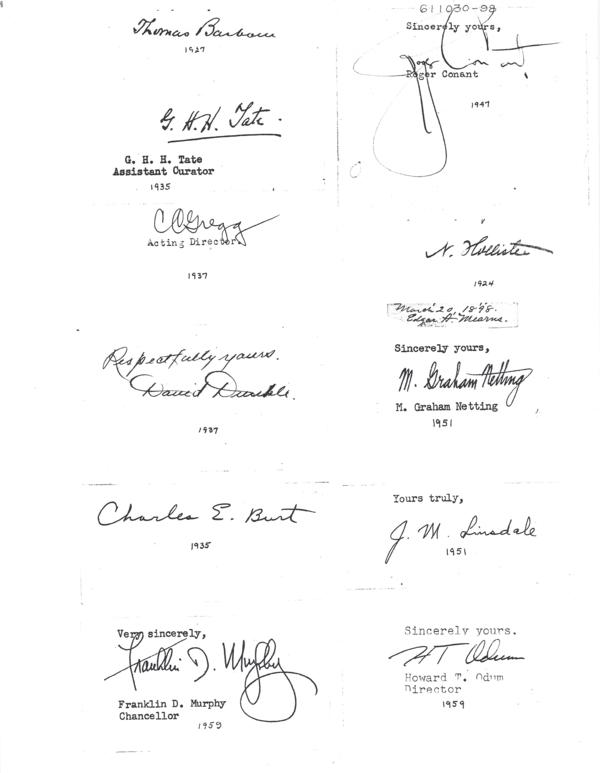 611030-98
Thomas Barbour
1927
G. H. H. Tate.
G. H. H. Tate
Assistant Curator
1935
C C Gregg
Acting Director
1937
Respectfully yours.
David Dunkle.
1937
Charles E. Burt
1935
Very sincerely,
Franklin D. Murphy
Franklin D. Murphy
Chancellor
1959
Sincerely yours,
Roger Conant
Roger Conant
1947
N. Hollister
1924
March 20, 1898.
Edgar A. Mearns.
Sincerely yours,
M. Graham Netting
M. Graham Netting
1951
Yours truly,
J. M. Linsdale
1951
Sincerely yours.
HT Odum
Howard T. Odum
Director
1959